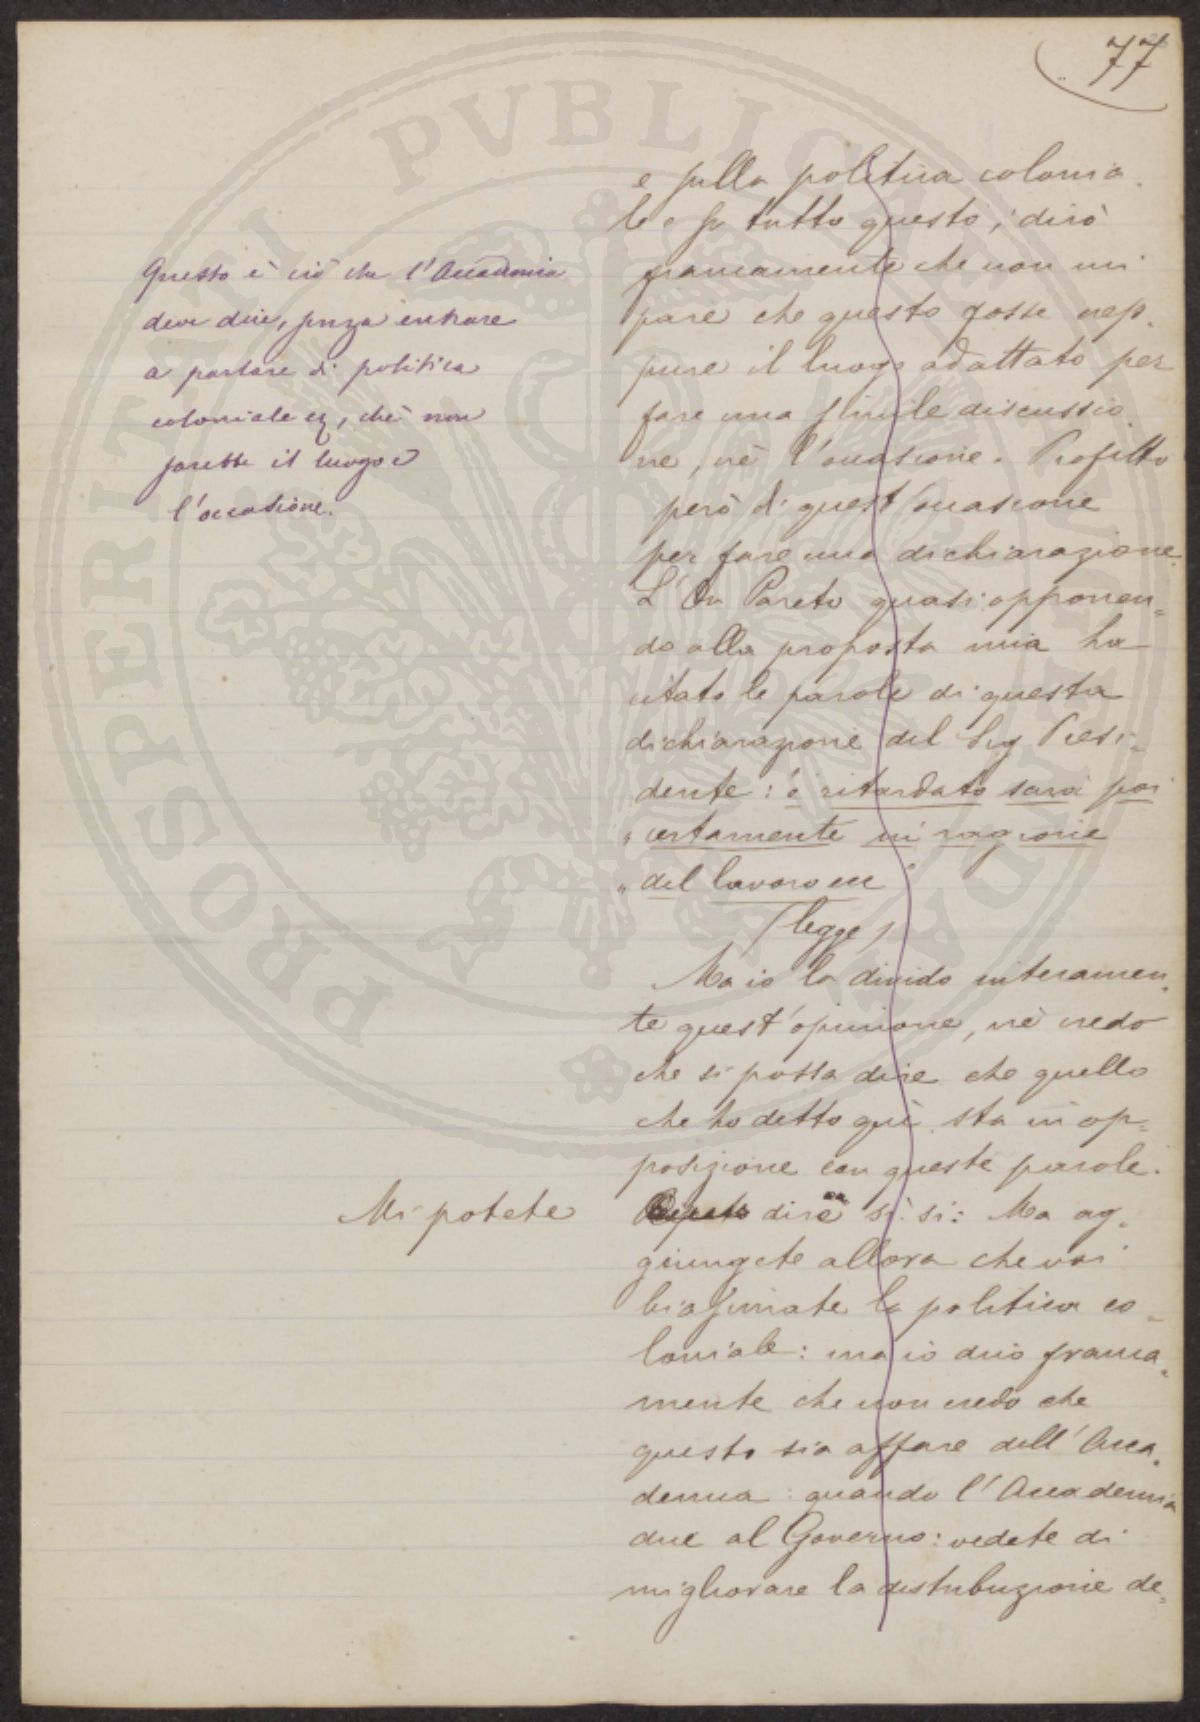 77
e sulla politica colonia
le e su tutto questo, dirò
francamente che non mi
pare che questo fosse nep-
pure il luogo adattato per
fare una simile discussio
ne, nè l'occasione. Profitto
però di quest'occasione
per fare una dichiarazione.
L'On Pareto quasi opponen-
do alla proposta mia ha
citato le parole di questa
dichiarazione del Sig Presi-
dente: è ritardato sarà poi
"certamente in ragione
"del lavoro ecc"
(legge)
Ma io la divido interamen-
te quest'opinione, nè credo
che si possa dire che quello
che ho detto qui sta in op-
posizione con queste parole.
dire sì sì: Ma ag-
giungete allora che voi
biasimate la politica co-
loniale: ma io dico franca-
mente che non credo che
questo sia affare dell'Acca-
demia: quando l'Accademia
dice al Governo: vedete di
migliorare la distribuzione de-
Questo è ciò che l'Accademia
deve dire, senza entrare
a parlare di politica
coloniale, chè non
sarebbe il luogo e
l'occasione.
Mi potete
PROSPERITATI PVBLICAE